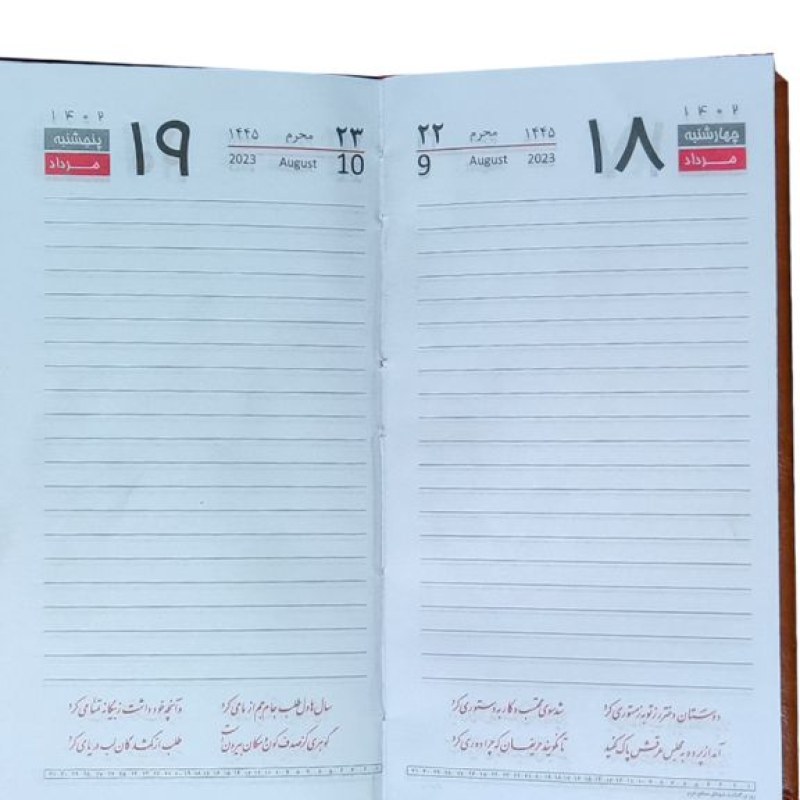 ۱۴۰۲
چهارشنبه
مرداد
۱۸
۱۴۴۵ محرم ۲۲
9 August 2023
دوستان دختر رز توبه ز مستوری کرد شد سوی محتسب و کار به دستوری کرد
آمد از پرده به مجلس عرقش پاک کنید تا نگویند حریفان که چرا دوری کرد
۱۴۰۲
پنجشنبه
مرداد
۱۹
۲۳ محرم ۱۴۴۵
2023 August 10
سال‌ها دل طلب جام جم از ما می‌کرد وآنچه خود داشت ز بیگانه تمنا می‌کرد
گوهری کز صدف کون و مکان بیرون است طلب از گمشدگان لب دریا می‌کرد